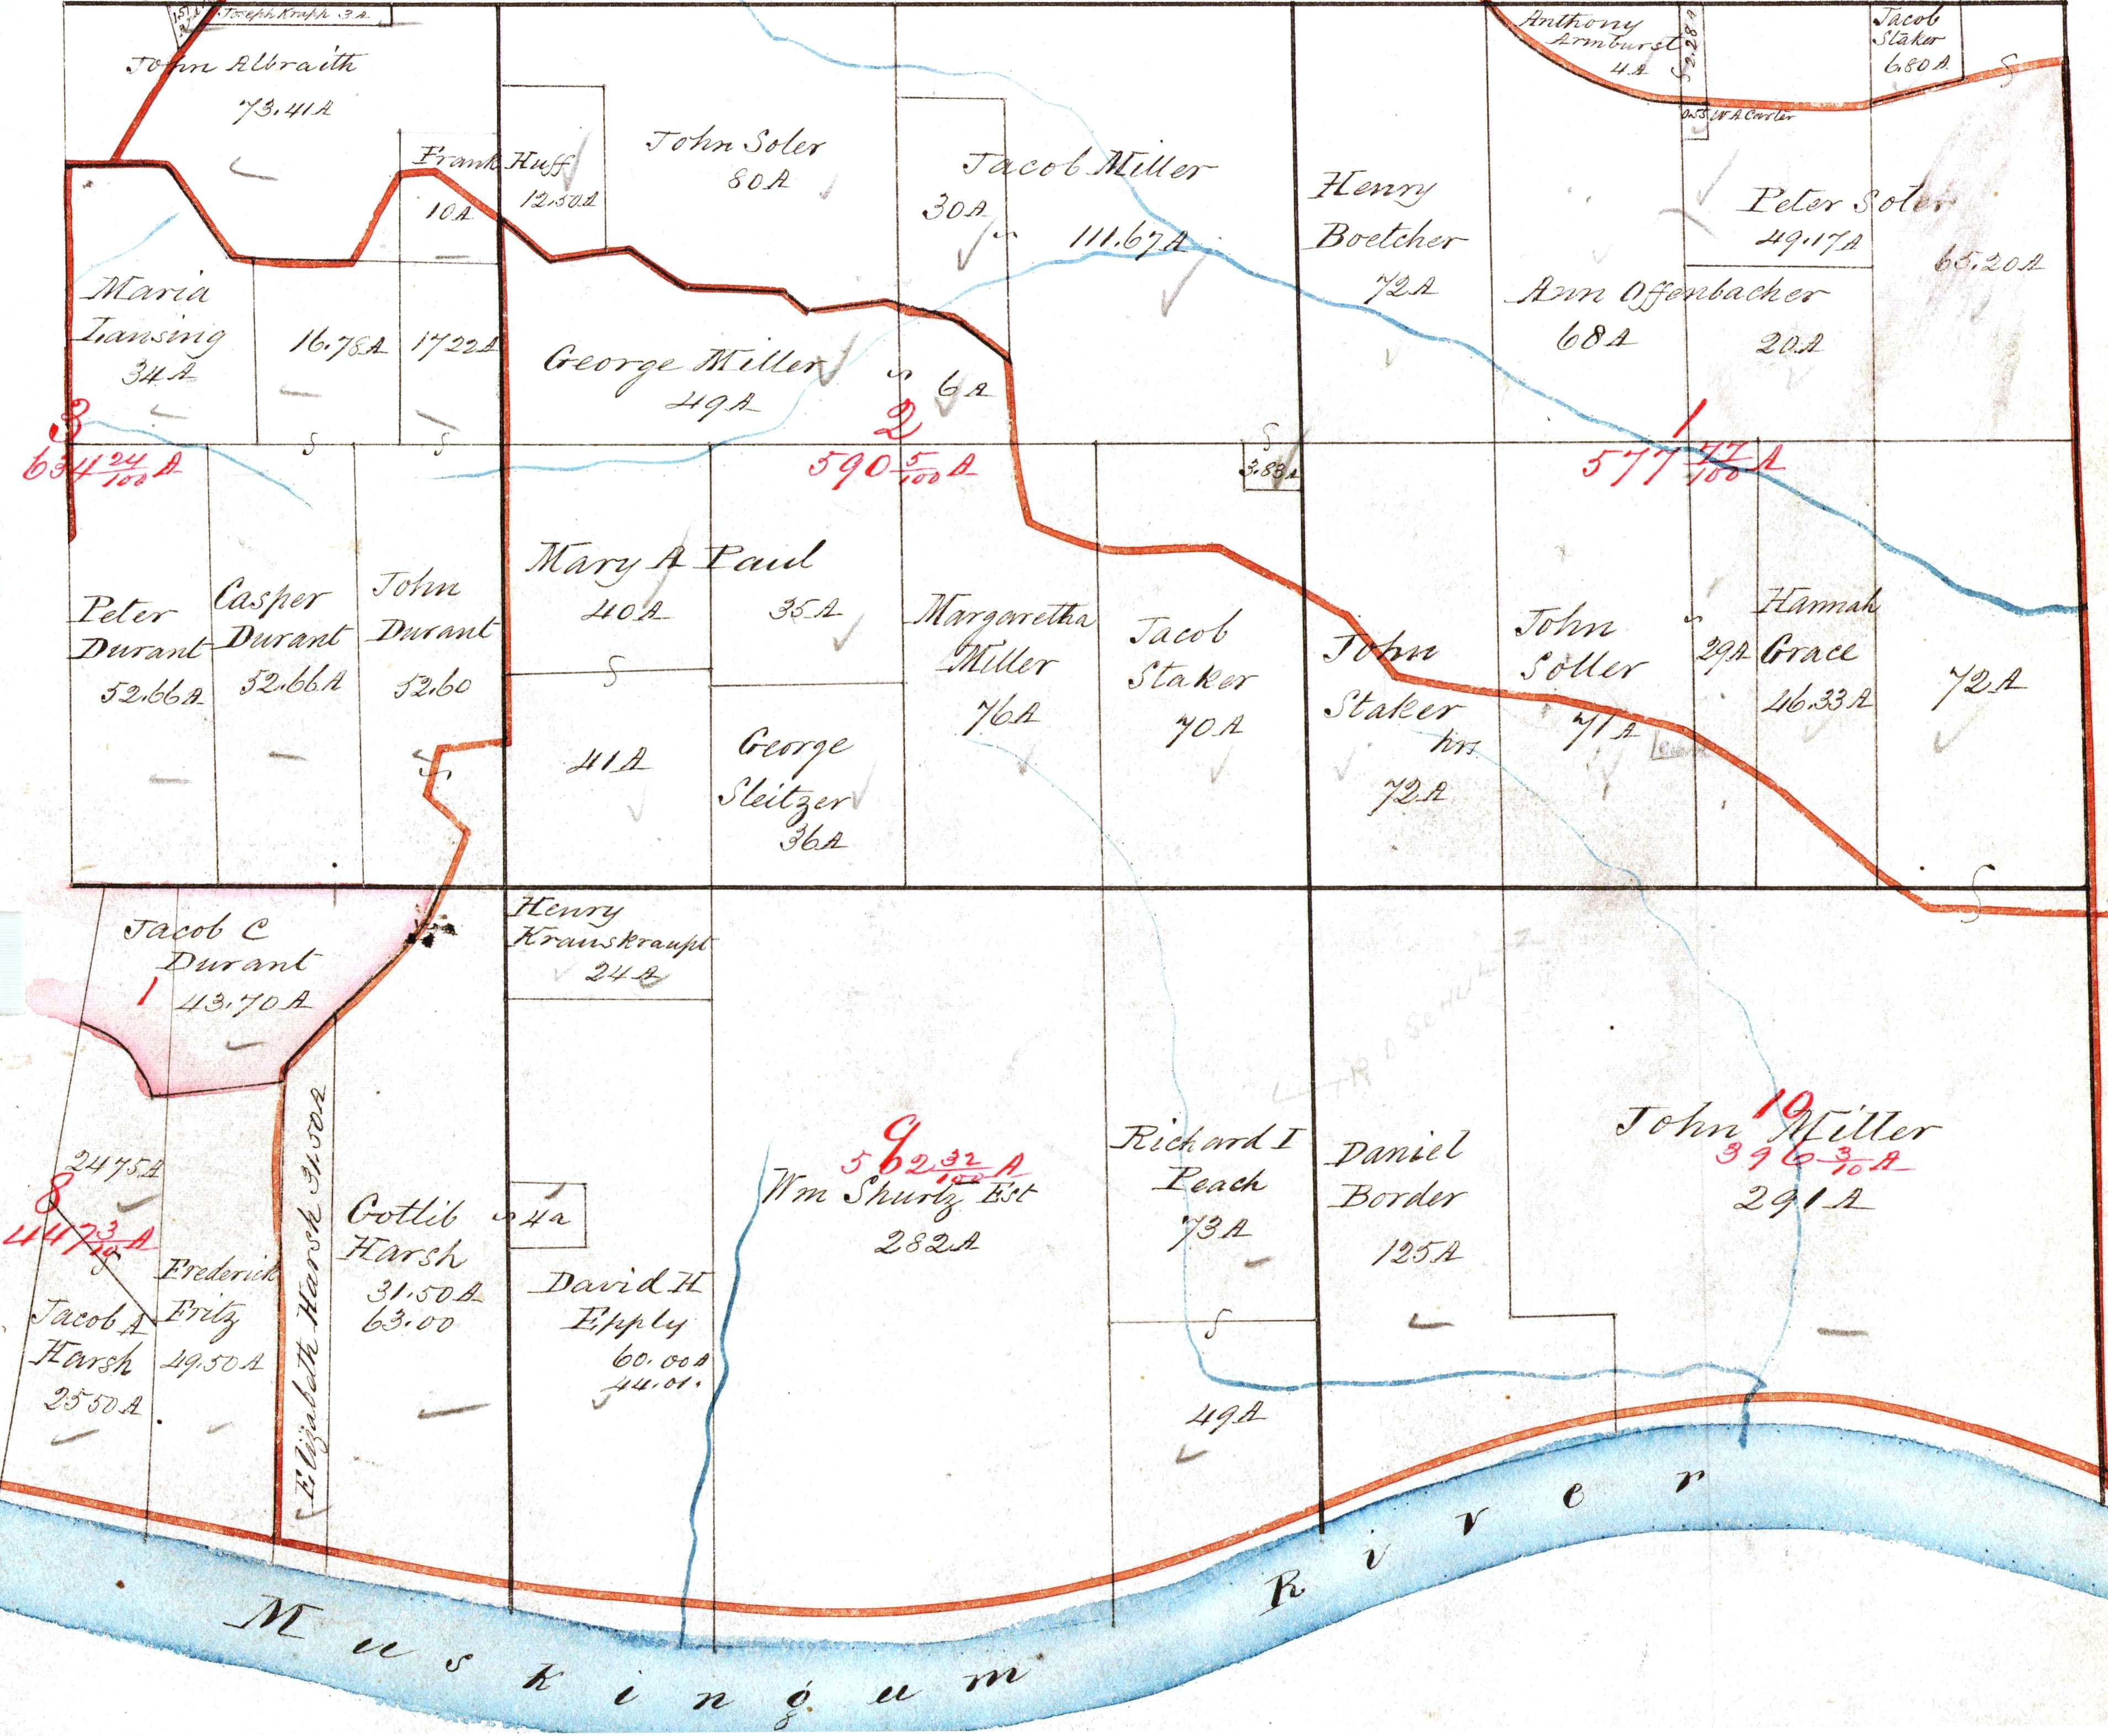 Joseph Kraph 3 A
John Albraith
73.41 A
Frank Huff
10 A
12.50 A
John Soler
80 A
Jacob Miller
30 A
111.67 A
Henry
Boetcher
72 A
Anthony
Armburst
4 A
2.28 A
Jacob
Staker
6.80 A
W A Carter
Peter Soler
49.17 A
65.20 A
Ann Offenbacher
68 A
20 A
Maria
Lansing
34 A
16.78 A
17 22 A
George Miller
49 A
6 A
3
634 24/100 A
2
590 5/100 A
1
577 77/100 A
3.83 A
Peter
Durant
52.66 A
Casper
Durant
52.66 A
John
Durant
52.60
Mary A Paul
40 A
35 A
41 A
George
Sleitzer
36 A
Margaretha
Miller
76 A
Jacob
Staker
70 A
John
Staker
hrs
72 A
John
Soller
71 A
29 A
Hannah
Grace
46.33 A
72 A
Jacob C
Durant
1
43.70 A
Henry
Krauskraupt
24 A
24 75 A
8
447 3/10 A
Jacob A
Harsh
25 50 A
Frederick
Fritz
49.50 A
Elizabeth Harsh 31.50 A
Gotlib
Harsh
31.50 A
63.00
4 a
David H
Epply
60.00 A
44.01.
9
562 32/100 A
Wm Shurtz Est
282 A
Richard I
Peach
73 A
49 A
R D SCHULTZ
Daniel
Border
125 A
10
John Miller
396 3/10 A
291 A
Muskingum River